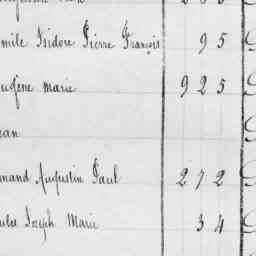 mile Isidore Pierre François 95
ugène Marie 925
ean
mand Augustin Paul 272
ules Joseph Marie 34